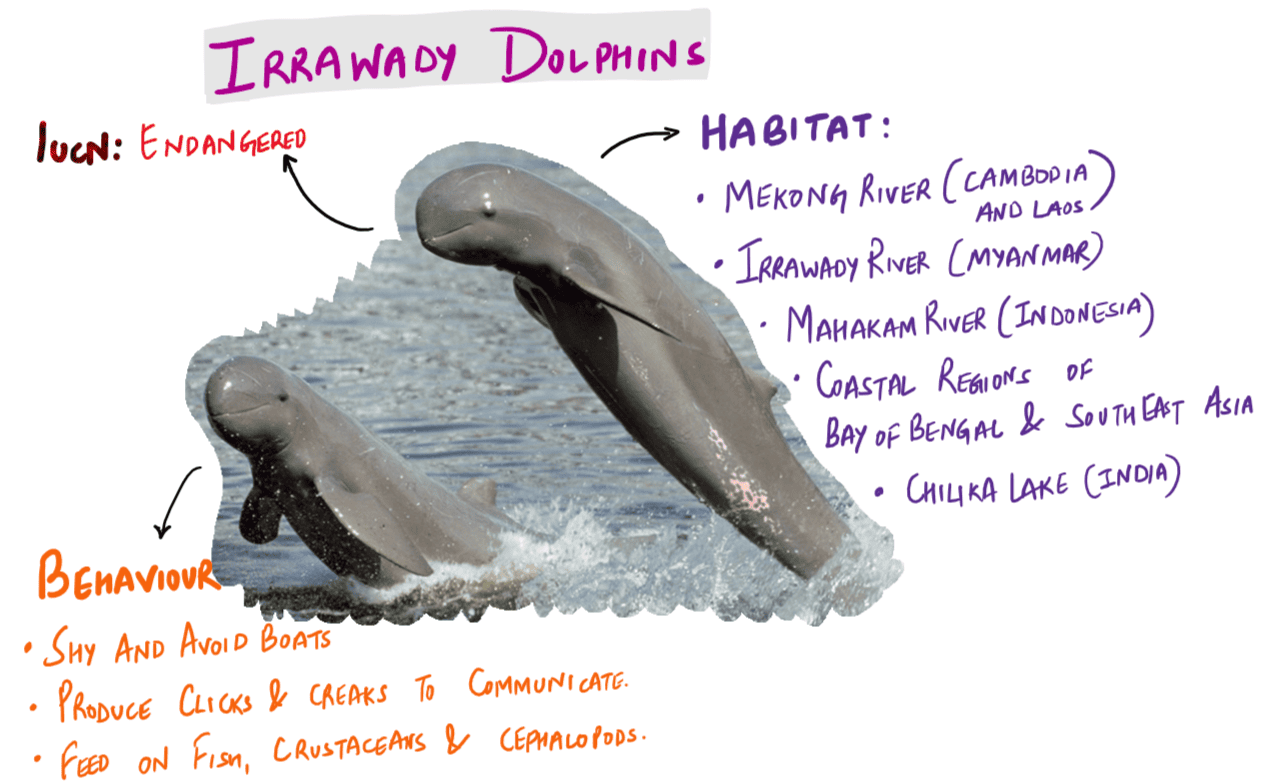 IRRAWADY DOLPHINS
IUCN: ENDANGERED
HABITAT:
• MEKONG RIVER (CAMBODIA AND LAOS)
• IRRAWADY RIVER (MYANMAR)
• MAHAKAM RIVER (INDONESIA)
• COASTAL REGIONS OF
BAY OF BENGAL & SOUTH EAST ASIA
• CHILIKA LAKE (INDIA)
BEHAVIOUR
• SHY AND AVOID BOATS
• PRODUCE CLICKS & CREAKS TO COMMUNICATE.
• FEED ON FISH, CRUSTACEANS & CEPHALOPODS.